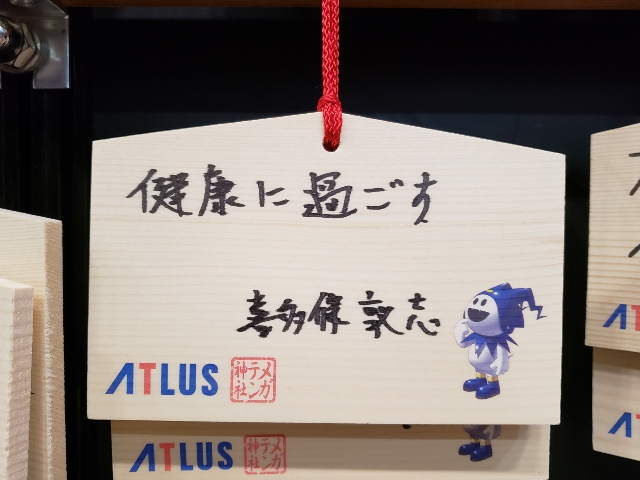 健康に過ごす
喜多條 敦志
ATLUS
メガテン神社
ATLUS
メガテン神社